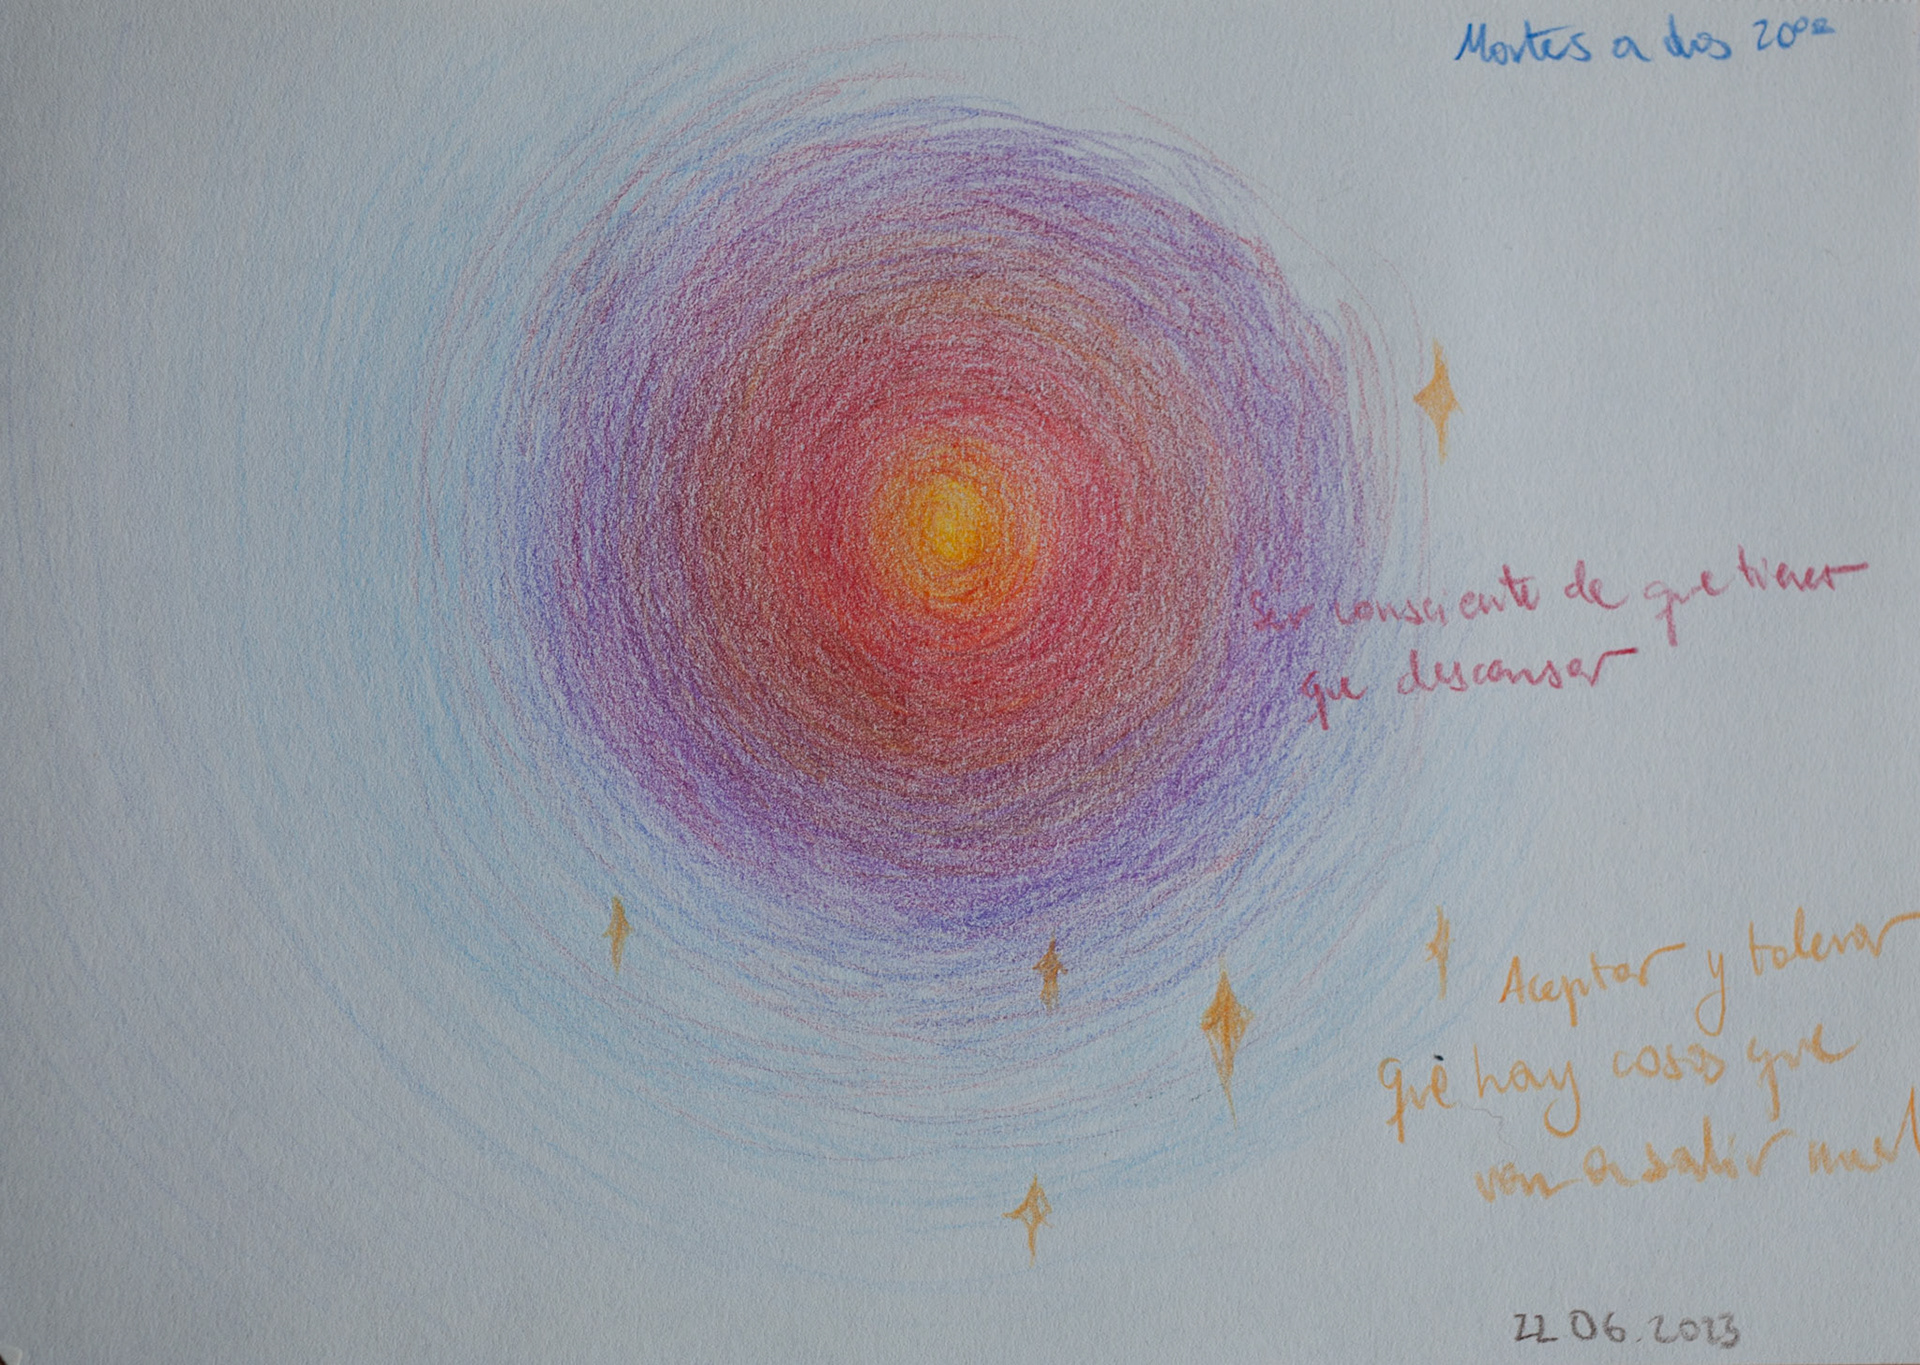 Martes a las 20:00
Ser consciente de que tienes
que descansar
Aceptar y tolerar
que hay cosas que
van a salir mal
22.06.2023